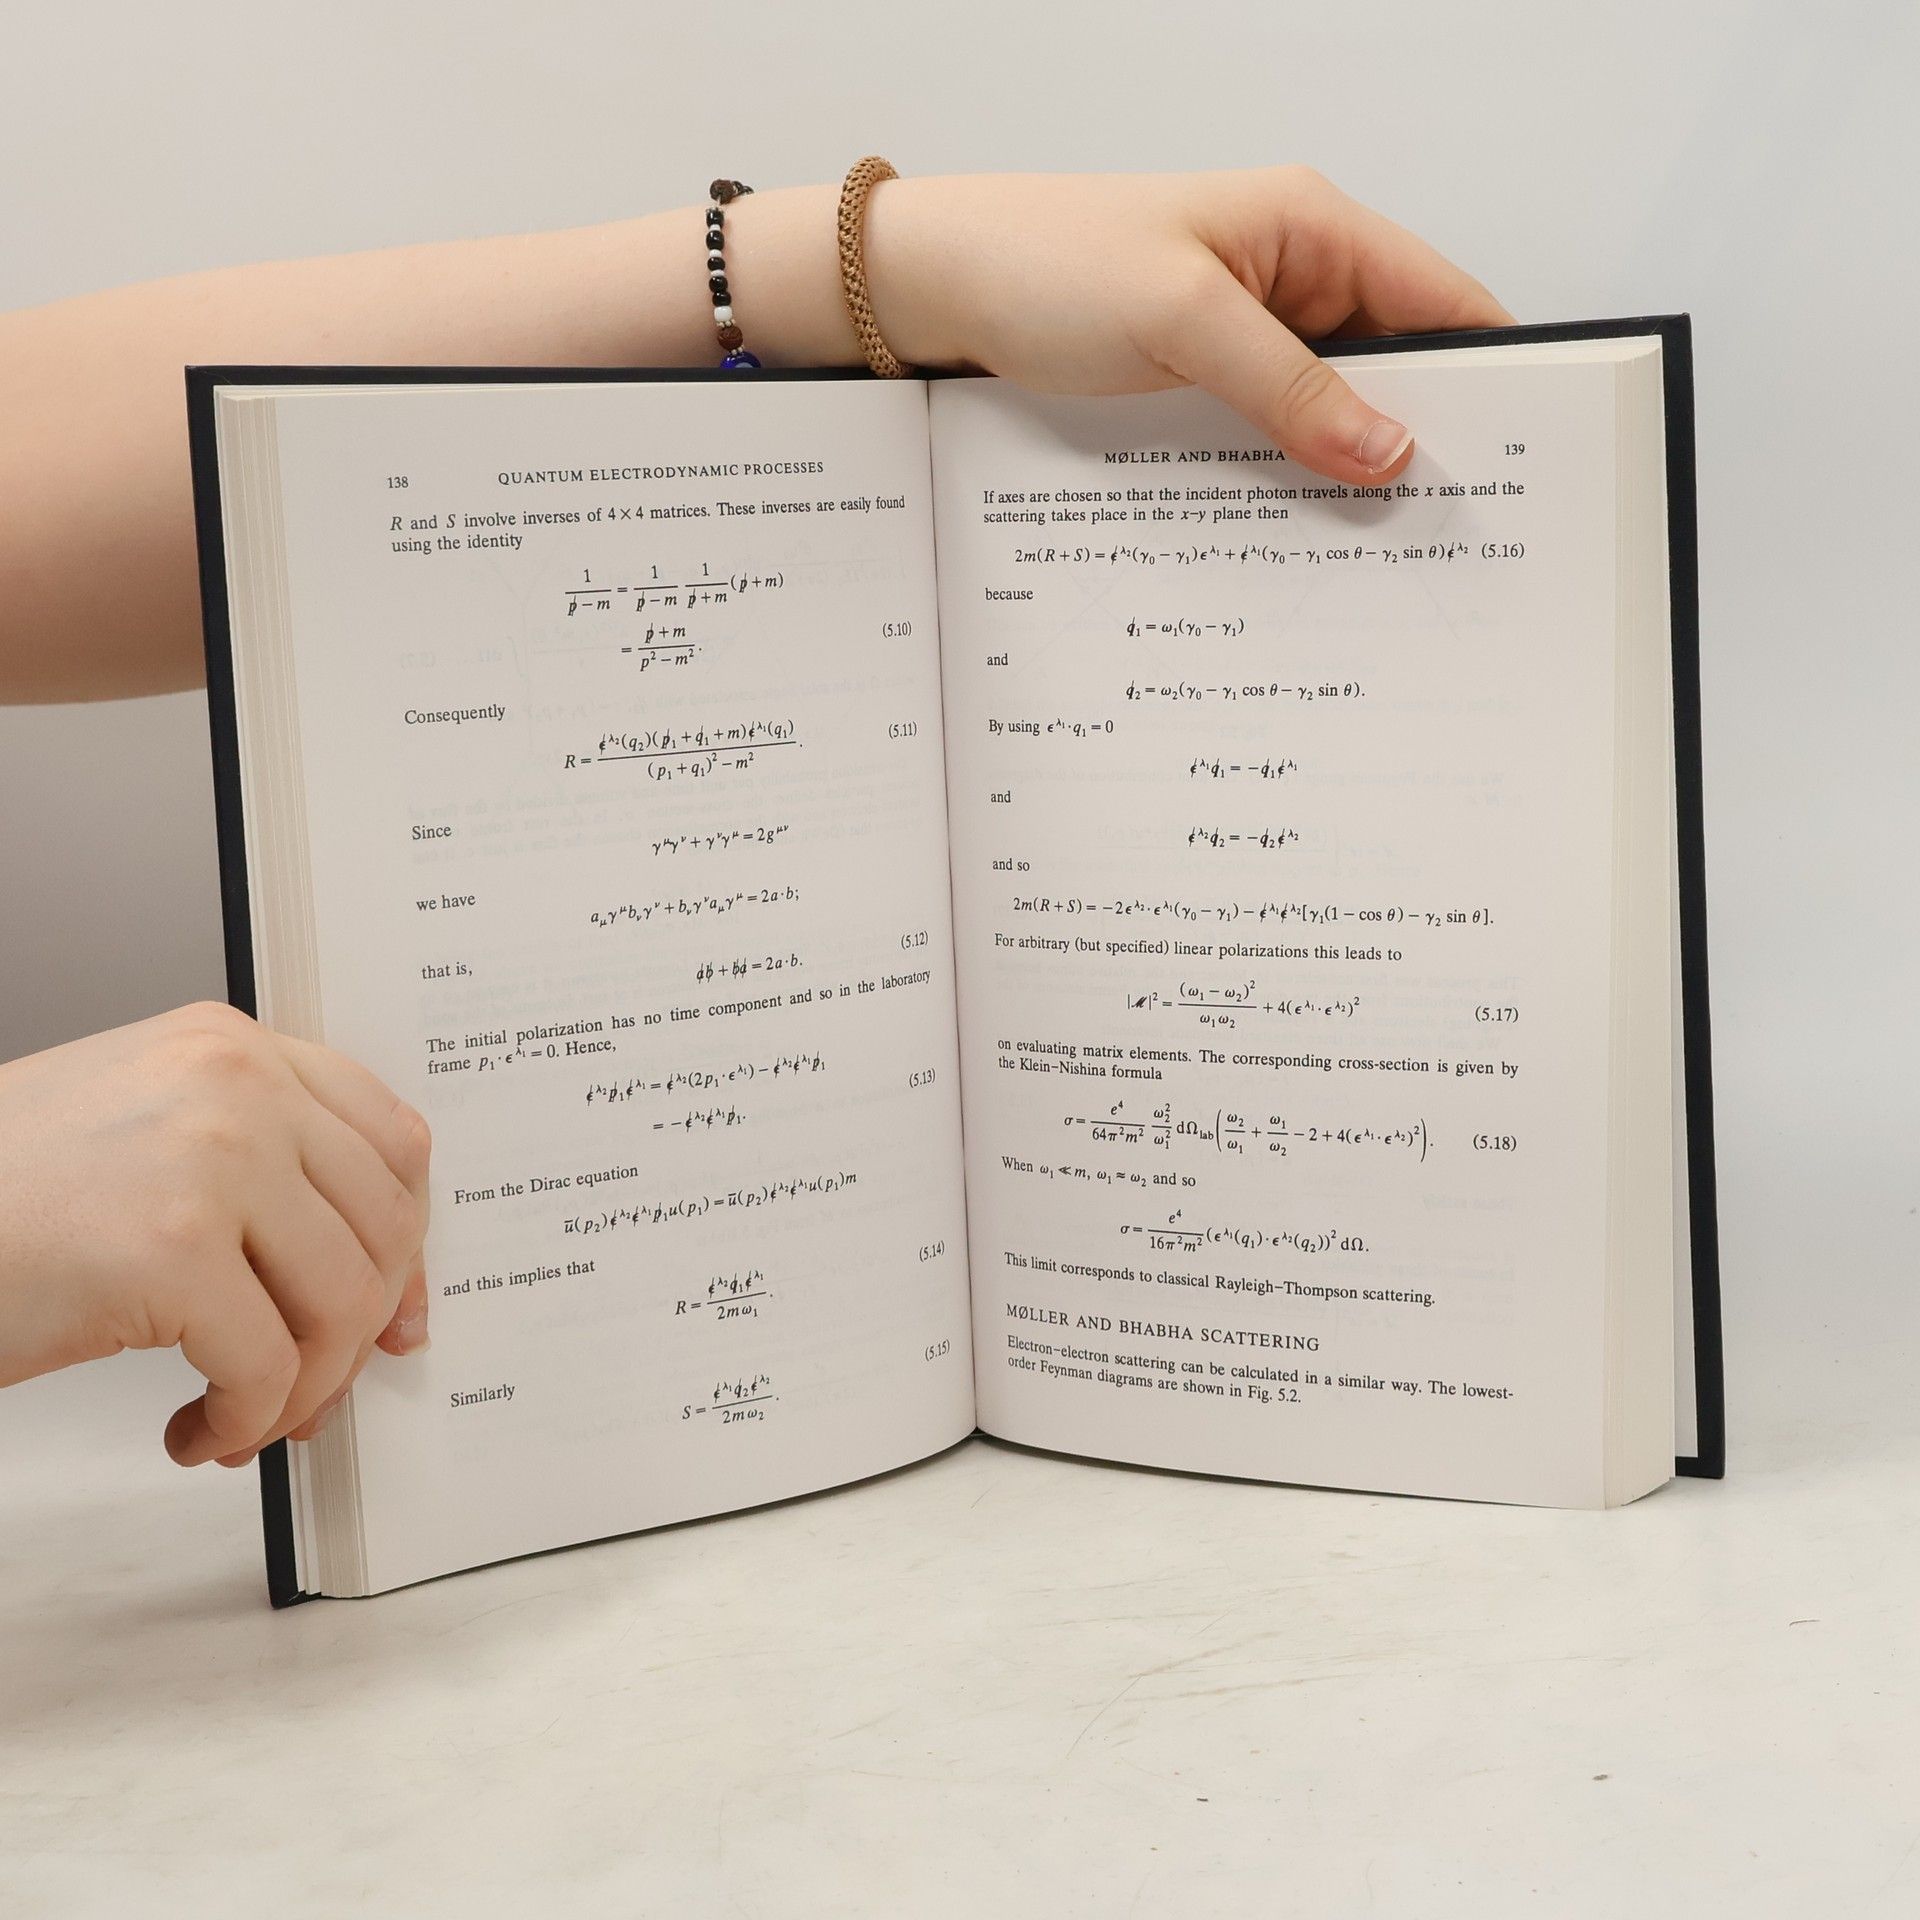 138 QUANTUM ELECTRODYNAMIC PROCESSES
R and S involve inverses of 4×4 matrices. These inverses are easily found
using the identity
1/(p̸−m) = 1/(p̸−m) 1/(p̸+m) (p̸+m)
= (p̸+m)/(p²−m²). (5.10)
Consequently
R = ε̸^λ₂(q₂)(p̸₁+q̸₁+m)ε̸^λ₁(q₁)/((p₁+q₁)²−m²). (5.11)
Since
γ^μγ^ν + γ^νγ^μ = 2g^μν
we have
a_μγ^μb_νγ^ν + b_νγ^νa_μγ^μ = 2a·b;
that is, (5.12)
a̸b̸ + b̸a̸ = 2a·b.
The initial polarization has no time component and so in the laboratory
frame p₁·ε^λ₁ = 0. Hence,
ε̸^λ₂p̸₁ε̸^λ₁ = ε̸^λ₂(2p₁·ε^λ₁) − ε̸^λ₂ε̸^λ₁p̸₁ (5.13)
= −ε̸^λ₂ε̸^λ₁p̸₁.
From the Dirac equation
ū(p₂)ε̸^λ₂ε̸^λ₁p̸₁u(p₁) = ū(p₂)ε̸^λ₂ε̸^λ₁u(p₁)m
and this implies that (5.14)
R = ε̸^λ₂q̸₁ε̸^λ₁/(2mω₁).
Similarly (5.15)
S = ε̸^λ₁q̸₂ε̸^λ₂/(2mω₂).
MØLLER AND BHABHA 139
If axes are chosen so that the incident photon travels along the x axis and the
scattering takes place in the x–y plane then
2m(R+S) = ε̸^λ₂(γ₀−γ₁)ε^λ₁ + ε̸^λ₁(γ₀−γ₁ cos θ−γ₂ sin θ)ε̸^λ₂ (5.16)
because
q̸₁ = ω₁(γ₀−γ₁)
and
q̸₂ = ω₂(γ₀−γ₁ cos θ−γ₂ sin θ).
By using ε^λ₁·q₁ = 0
ε̸^λ₁q̸₁ = −q̸₁ε̸^λ₁
and
ε̸^λ₂q̸₂ = −q̸₂ε̸^λ₂
and so
2m(R+S) = −2ε^λ₂·ε^λ₁(γ₀−γ₁) − ε̸^λ₁ε̸^λ₂[γ₁(1−cos θ)−γ₂ sin θ].
For arbitrary (but specified) linear polarizations this leads to
|ℳ|² = (ω₁−ω₂)²/(ω₁ω₂) + 4(ε^λ₁·ε^λ₂)² (5.17)
on evaluating matrix elements. The corresponding cross-section is given by
the Klein–Nishina formula
σ = e⁴/(64π²m²) ω₂²/ω₁² dΩ_lab(ω₂/ω₁ + ω₁/ω₂ − 2 + 4(ε^λ₁·ε^λ₂)²). (5.18)
When ω₁ ≪ m, ω₁ ≈ ω₂ and so
σ = e⁴/(16π²m²) (ε^λ₁(q₁)·ε^λ₂(q₂))² dΩ.
This limit corresponds to classical Rayleigh–Thompson scattering.
MØLLER AND BHABHA SCATTERING
Electron–electron scattering can be calculated in a similar way. The lowest-
order Feynman diagrams are shown in Fig. 5.2.